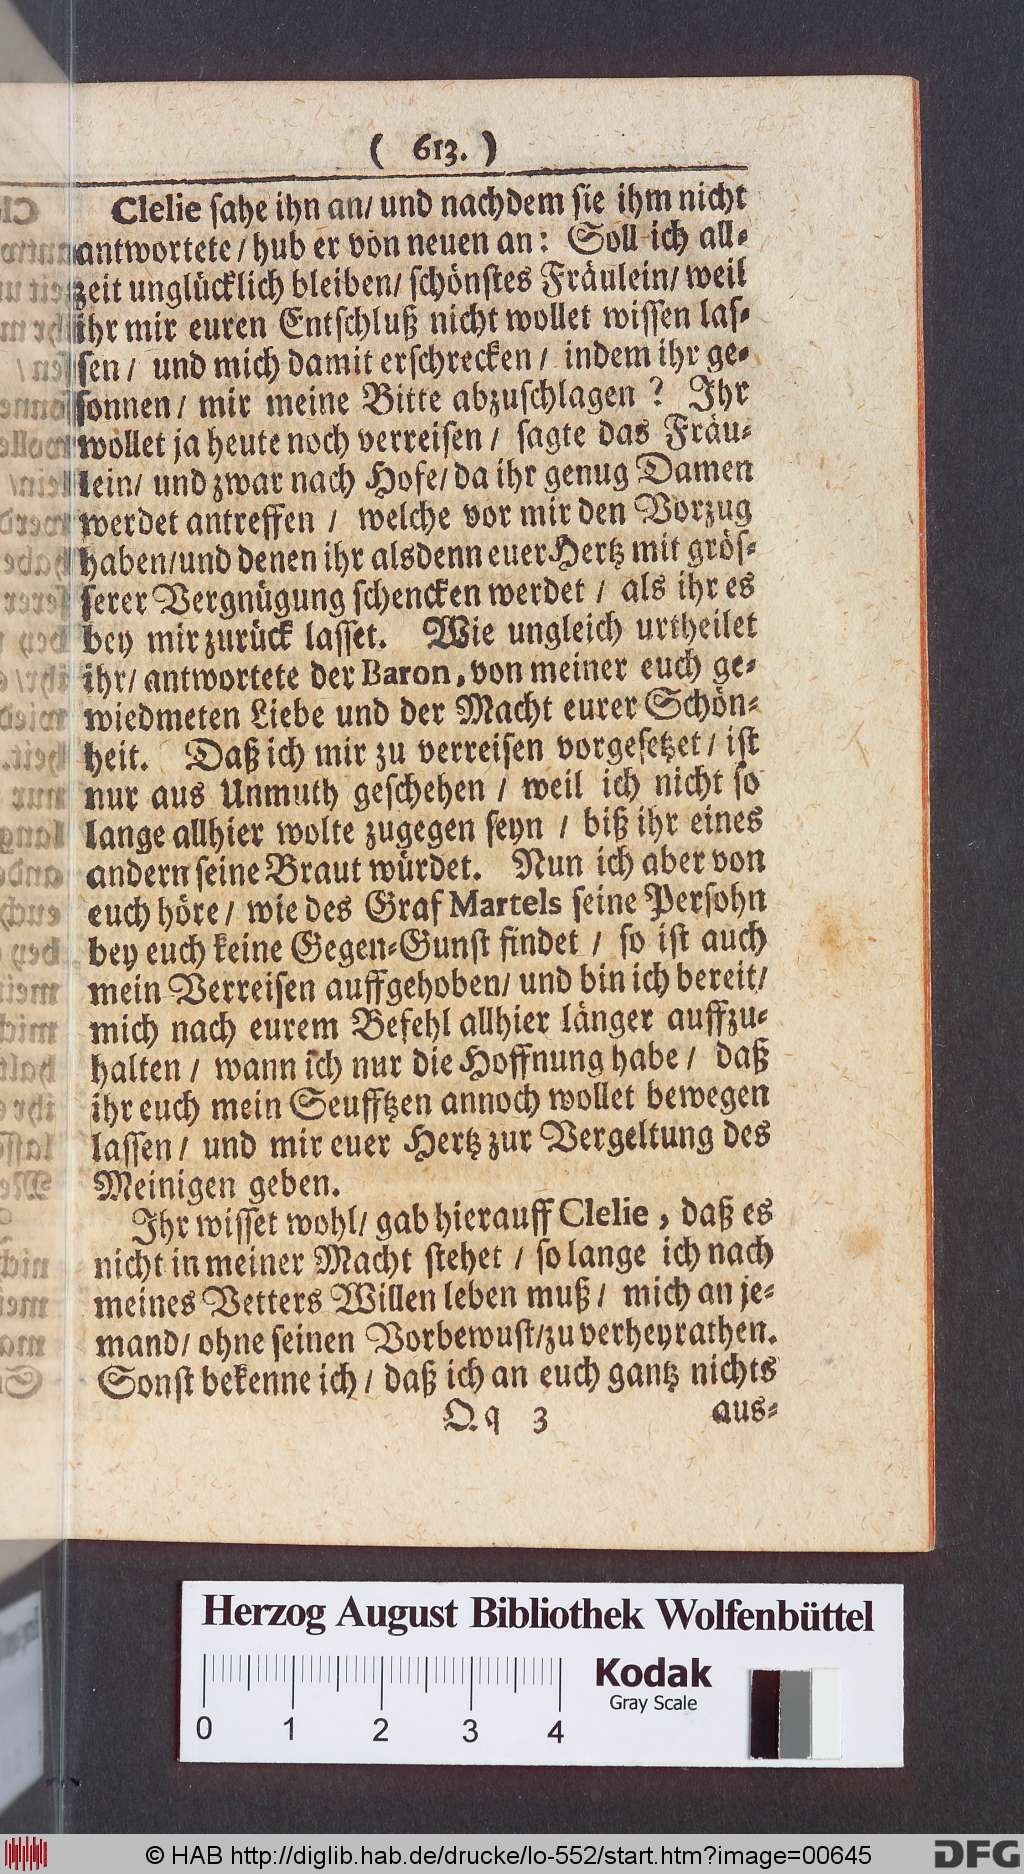 ( 613. )
Clelie sahe ihn an/ und nachdem sie ihm nicht
antwortete/ hub er von neuen an: Soll ich all-
zeit unglücklich bleiben/ schönstes Fräulein/ weil
ihr mir euren Entschluß nicht wollet wissen las-
sen/ und mich damit erschrecken/ indem ihr ge-
sonnen/ mir meine Bitte abzuschlagen? Ihr
wollet ja heute noch verreisen/ sagte das Fräu-
lein/ und zwar nach Hofe/ da ihr genug Damen
werdet antreffen / welche vor mir den Vorzug
haben/ und denen ihr alsdenn euer Hertz mit grös-
serer Vergnügung schencken werdet / als ihr es
bey mir zurück lasset. Wie ungleich urtheilet
ihr/ antwortete der Baron, von meiner euch ge-
wiedmeten Liebe und der Macht eurer Schön-
heit. Daß ich mir zu verreisen vorgesetzet/ ist
nur aus Unmuth geschehen / weil ich nicht so
lange allhier wolte zugegen seyn / biß ihr eines
andern seine Braut würdet. Nun ich aber von
euch höre/ wie des Graf Martels seine Persohn
bey euch keine Gegen-Gunst findet / so ist auch
mein Verreisen auffgehoben/ und bin ich bereit/
mich nach eurem Befehl allhier länger auffzu-
halten / wann ich nur die Hoffnung habe / daß
ihr euch mein Seufftzen annoch wollet bewegen
lassen/ und mir euer Hertz zur Vergeltung des
Meinigen geben.
Ihr wisset wohl/ gab hierauff Clelie, daß es
nicht in meiner Macht stehet / so lange ich nach
meines Vetters Willen leben muß/ mich an je-
mand/ ohne seinen Vorbewust/ zu verheyrathen.
Sonst bekenne ich / daß ich an euch gantz nichts
Q q 3 aus-
Herzog August Bibliothek Wolfenbüttel
Kodak
Gray Scale
0 1 2 3 4
© HAB http://diglib.hab.de/drucke/lo-552/start.htm?image=00645
DFG